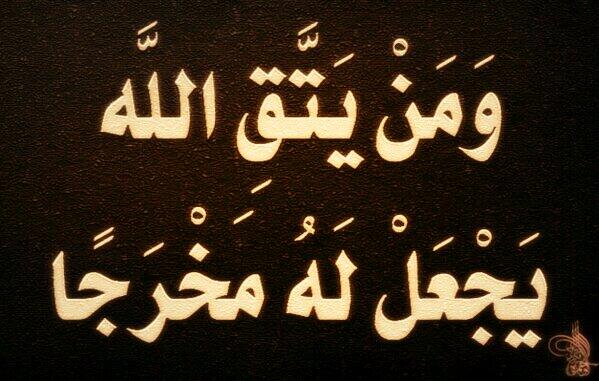 وَمَنْ يَتَّقِ اللَّه
يَجْعَلْ لَهُ مَخْرَجًا